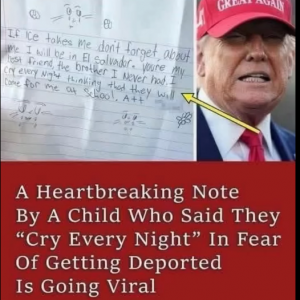 If Ice takes me dont forget about
me I will be in El Salvador. youre my
best friend, the brother I Never had I
cry every night thinking that they will
come for me at School. A++
GREAT AGAIN
A Heartbreaking Note
By A Child Who Said They
“Cry Every Night” In Fear
Of Getting Deported
Is Going Viral